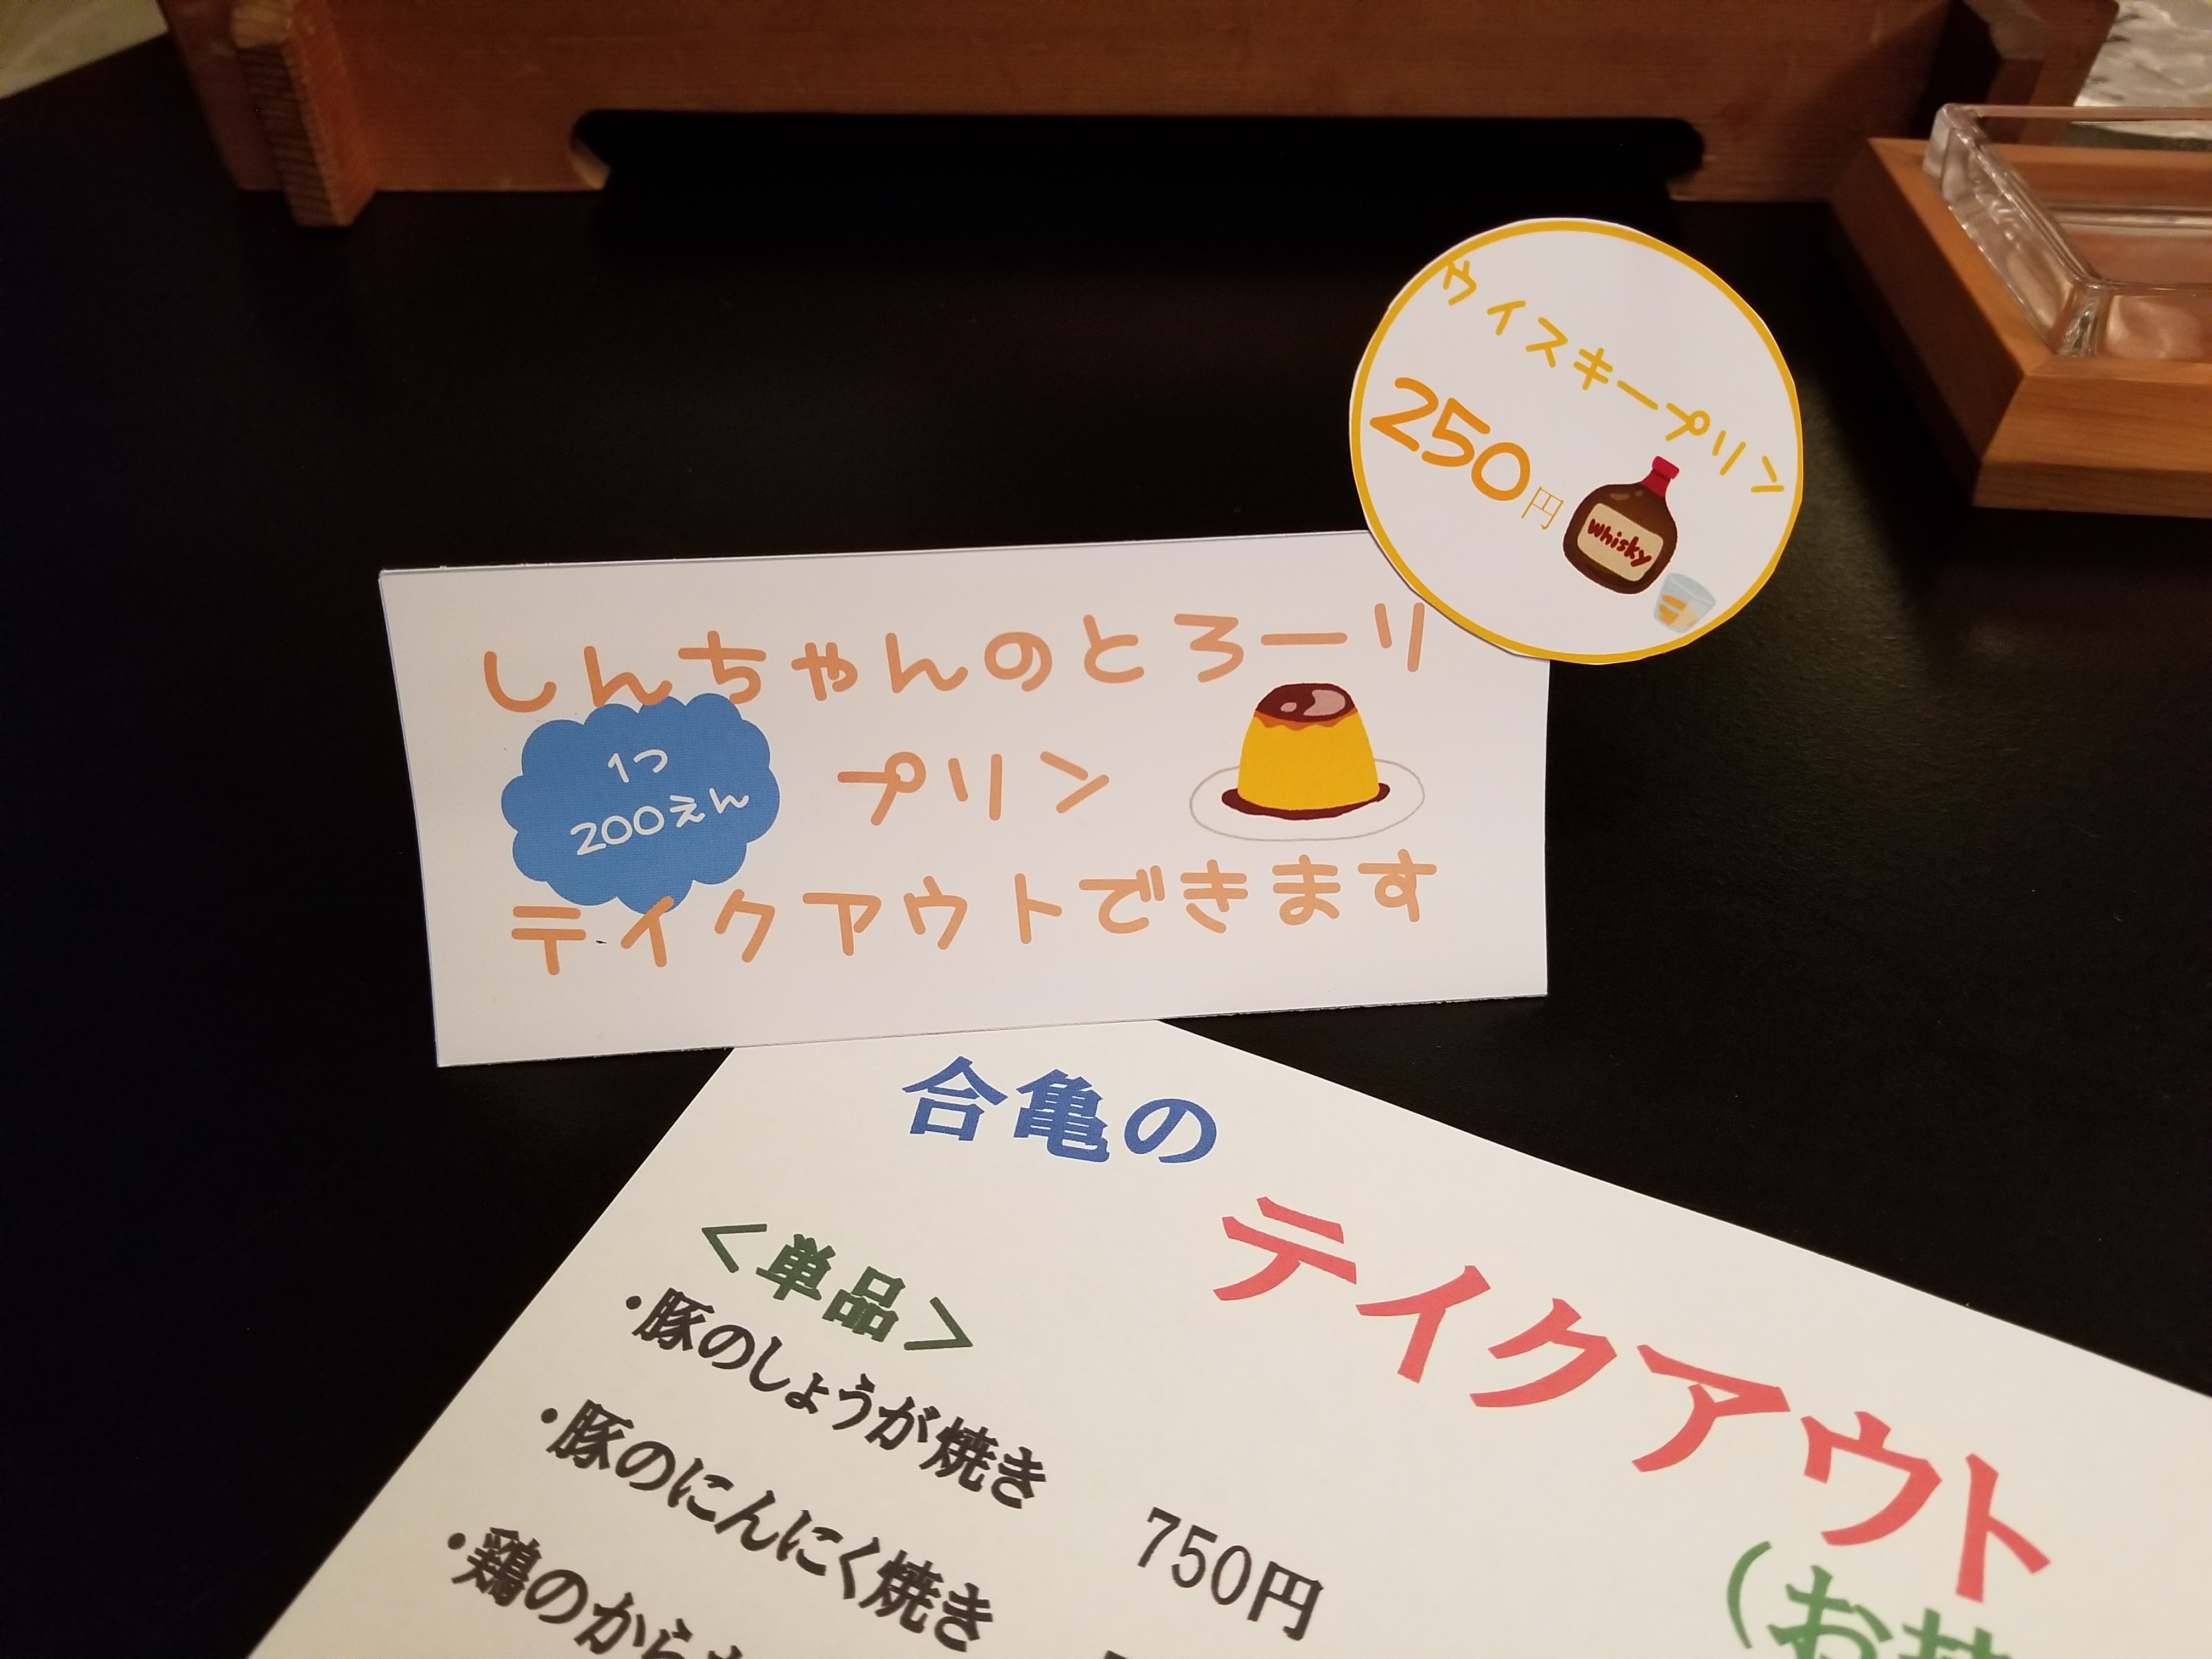 ウイスキープリン
250円
Whisky
しんちゃんのとろーり
1つ
200えん
プリン
テイクアウトできます
合亀の
テイクアウト
＜単品＞
・豚のしょうが焼き 750円
・豚のにんにく焼き
・鶏のから
（お